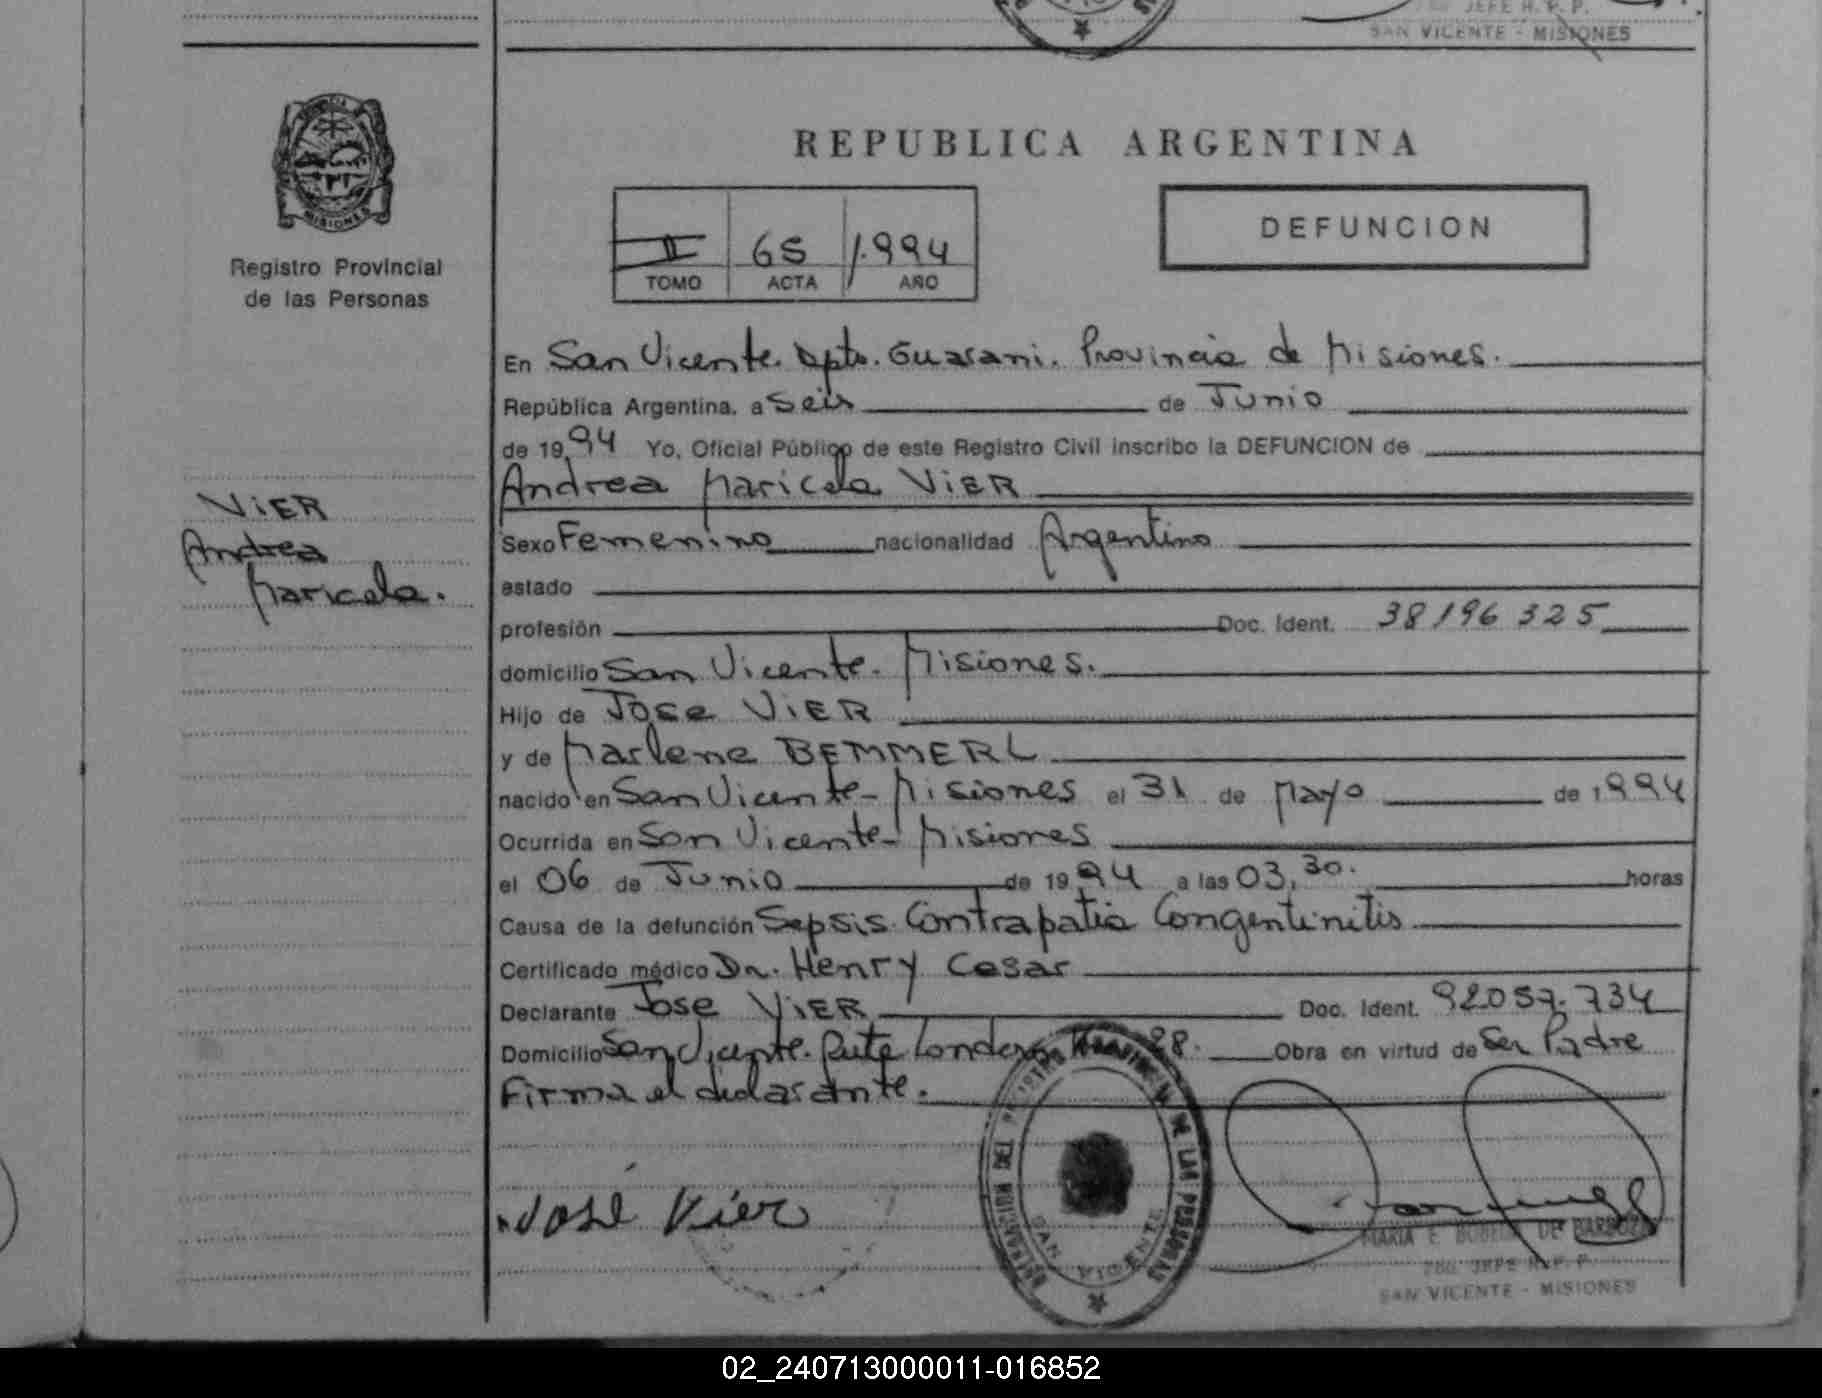 JEFE R. P. P.
SAN VICENTE - MISIONES
MISIONES
Registro Provincial
de las Personas
REPUBLICA ARGENTINA
II 65 1.994
TOMO ACTA AÑO
DEFUNCION
En San Vicente. Dpto. Guarani. Provincia de Misiones.
República Argentina, a Seis de Junio
de 1994 Yo, Oficial Público de este Registro Civil inscribo la DEFUNCION de
Andrea Maricela ViER
ViER
Andrea
Maricela.
Sexo Femenino nacionalidad Argentino
estado
profesión Doc. Ident. 38196325
domicilio San Vicente. Misiones.
Hijo de Jose ViER
y de Marlene BEMMERL
nacido en San Vicente - Misiones el 31 de Mayo de 1994
Ocurrida en San Vicente - Misiones
el 06 de Junio de 1994 a las 03,30. horas
Causa de la defunción Sepsis. Contrapatia Congentinitis
Certificado médico Dr. Henry Cesar
Declarante Jose ViER Doc. Ident. 92057.734
Domicilio San Vicente. Ruta Londero 28. Obra en virtud de Ser Padre
Firma el declarante.
José Vier
DELEGACION DEL REGISTRO PROVINCIAL DE LAS PERSONAS
SAN VICENTE
MARIA E. DE BARBOZA
2do. JEFE R. P. P.
SAN VICENTE - MISIONES
02_240713000011-016852